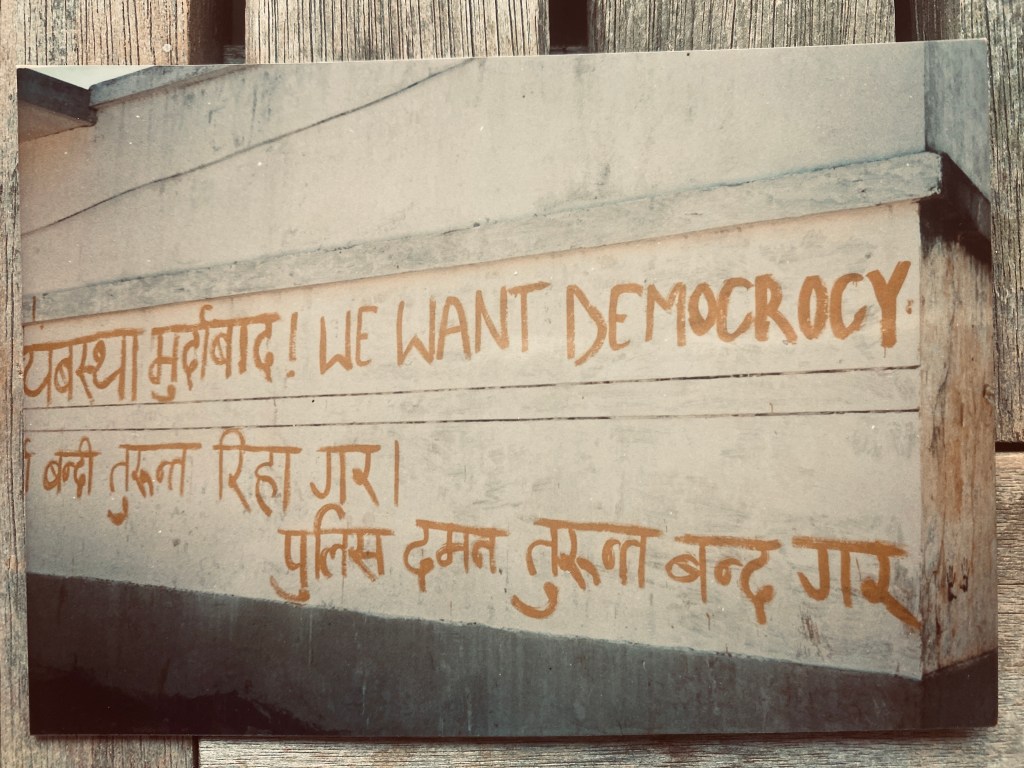 यबस्था मुर्दाबाद! WE WANT DEMOCROCY.
बन्दी तुरून्त रिहा गर।
पुलिस दमन तुरून्त बन्द गर